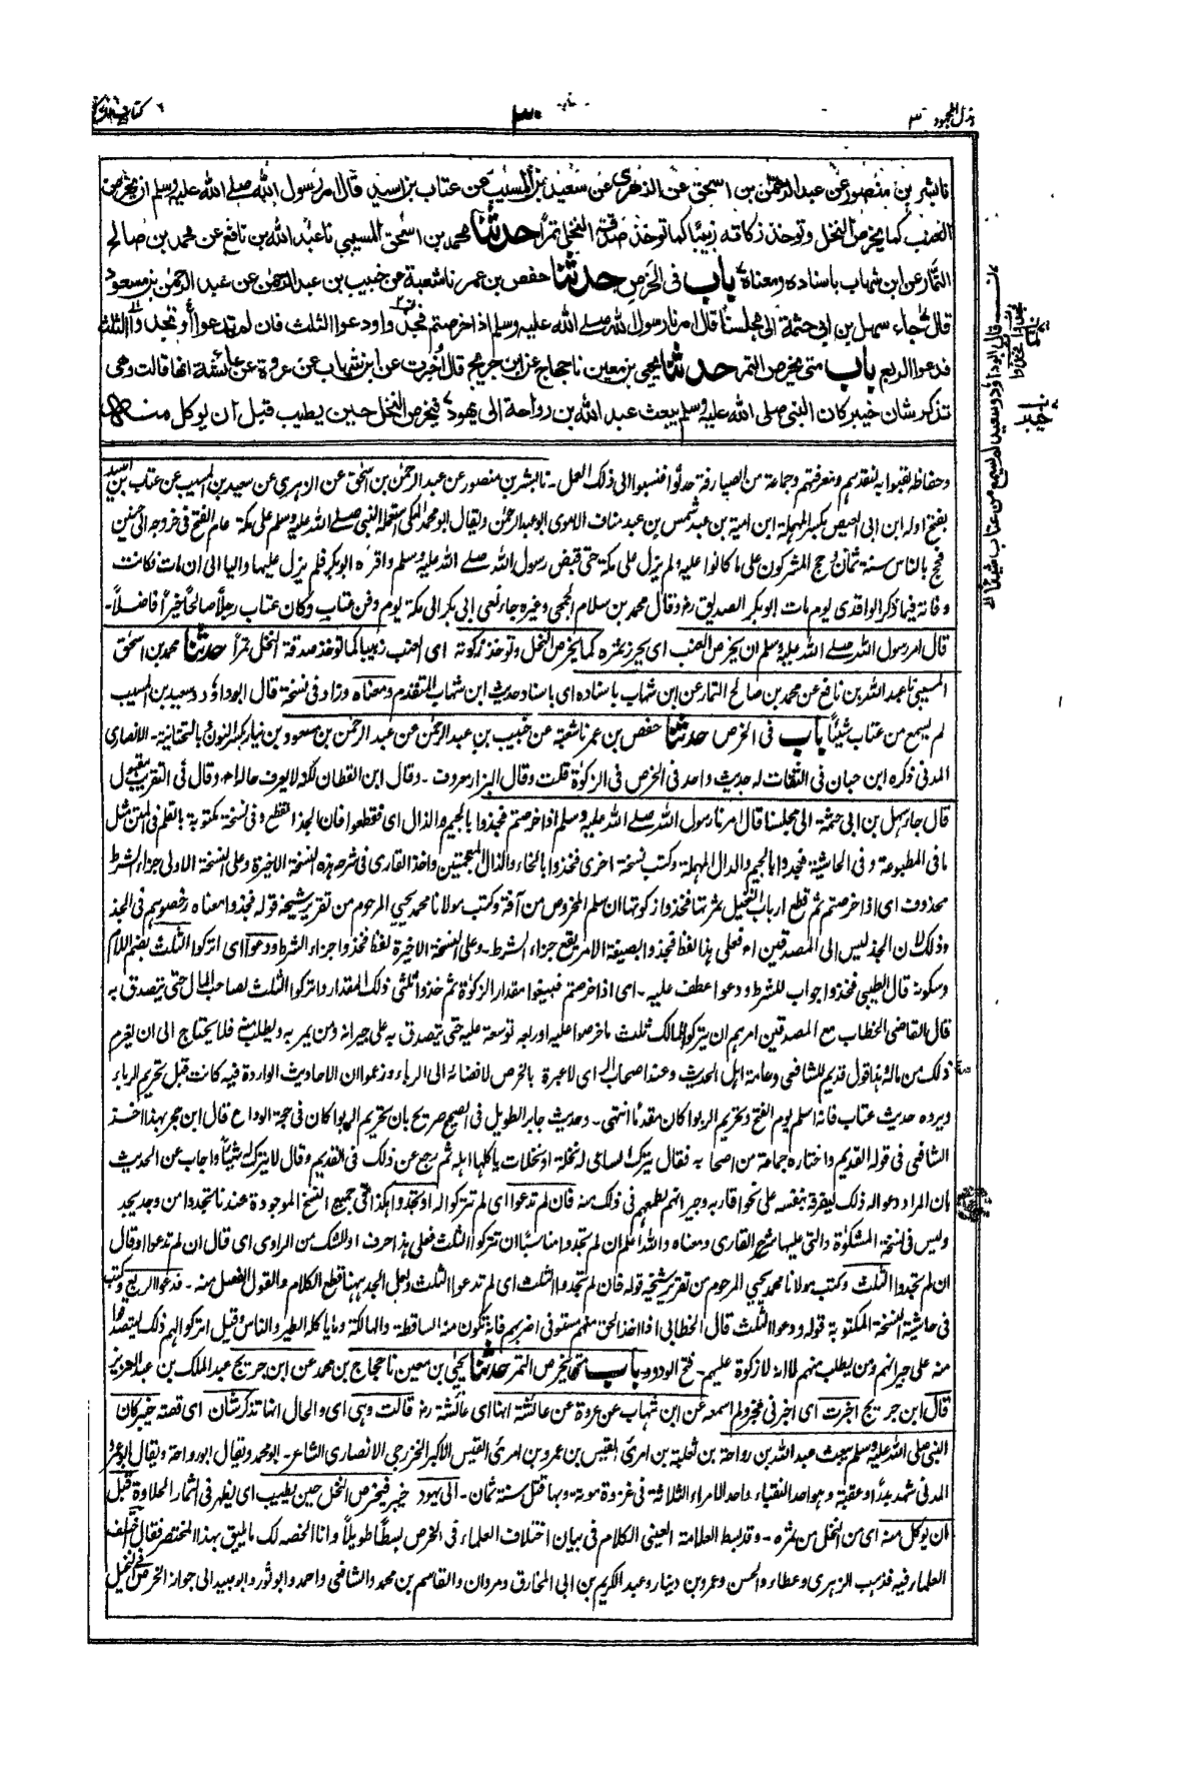 بذل المجهود ٣
٣٠
كتاب الزكوة
نا بشر بن منصور عن عبد الرحمن بن اسحق عن الزهري عن سعيد بن المسيب عن عتاب بن اسيد قال امر رسول الله صلى الله عليه وسلم ان يخرص
العنب كما يخرص النخل وتوخذ زكاته زبيبا كما توخذ صدقة النخل تمرا حدثنا محمد بن اسحق المسيبي نا عبد الله بن نافع عن محمد بن صالح
التمار عن ابن شهاب باسناده ومعناه باب في الخرص حدثنا حفص بن عمر نا شعبة عن خبيب بن عبد الرحمن عن عبد الرحمن بن مسعود
قال جاء سهل بن ابي حثمة الى مجلسنا قال امرنا رسول الله صلى الله عليه وسلم اذا خرصتم فجذوا ودعوا الثلث فان لم تدعوا او تجذوا الثلث
فدعوا الربع باب متى يخرص التمر حدثنا يحيى بن معين نا حجاج عن ابن جريج قال أخبرت عن ابن شهاب عن عروة عن عائشة انها قالت وهي
تذكر شان خيبر كان النبي صلى الله عليه وسلم يبعث عبد الله بن رواحة الى يهود فيخرص النخل حين يطيب قبل ان يوكل منه
وحفاظ لقبوا به لنقدهم ومعرفتهم وجماعة من الصيارفة حدثوا فنسبوا الى ذلك العمل۔ نا بشر بن منصور عن عبد الرحمن بن اسحق عن الزهري عن سعيد بن المسيب عن عتاب بن اسيد
بفتح اوله ابن ابي العيص بكسر المهملة ابن امية بن عبد شمس بن عبد مناف الاموي ابو عبد الرحمن ويقال ابو محمد المكي استعمله النبي صلى الله عليه وسلم على مكة عام الفتح في خروجه الى حنين
فحج بالناس سنة ثمان وحج المشركون على ما كانوا عليه ولم يزل على مكة حتى قبض رسول الله صلى الله عليه وسلم واقره ابو بكر فلم يزل عليها واليا الى ان مات فكانت
وفاته فيما ذكر الواقدي يوم مات ابو بكر الصديق رض وقال محمد بن سلام الجمحي وغيره جاء نعي ابي بكر الى مكة يوم دفن عتاب وكان عتاب رجلا صالحا خيرا فاضلا۔
قال امر رسول الله صلى الله عليه وسلم ان يخرص العنب اى يحرز ثمره كما يخرص النخل وتوخذ زكوته اى العنب زبيبا كما توخذ صدقة النخل تمرا حدثنا محمد بن اسحق
المسيبي نا عبد الله بن نافع عن محمد بن صالح التمار عن ابن شهاب باسناده اى باسناد حديث ابن شهاب المتقدم ومعناه وزاد في نسخة قال ابو داؤد وسعيد بن المسيب
لم يسمع من عتاب شيئا باب في الخرص حدثنا حفص بن عمر نا شعبة عن خبيب بن عبد الرحمن عن عبد الرحمن بن مسعود بن نيار بكسر النون بالتحتانية۔ الانصاري
المدني ذكره ابن حبان في الثقات له حديث واحد في الخرص في الزكوة قلت وقال البزار معروف۔ وقال ابن القطان لكنه لا يعرف حاله اه وقال في التقريب مقبول
قال جاء سهل بن ابي حثمة الى مجلسنا قال امرنا رسول الله صلى الله عليه وسلم اذا خرصتم فجذوا بالجيم والذال اى فقطعوا فان الجذ القطع وفي نسخة مكتوبة بالقلم في المتن مثل
ما في المطبوعة وفي الحاشية فجدوا بالجيم والدال المهملة وكتب نسخة اخرى فخذوا بالخاء والذال المعجمتين واخذ القاري في شرحه هذه النسخة الاخيرة وعلى النسخة الاولى جزاء الشرط
محذوف اى اذا خرصتم ثم قطع ارباب النخيل ثمرتها فخذوا زكوتها ان سلم المخروص من آفة وكتب مولانا محمد يحيى المرحوم من تقرير شيخه قوله فجذوا معناه رخصوهم في الجذ
وذلك لان الجذ ليس الى المصدقين اه فعلى هذا لفظ فجذوا بصيغة الامر يقع جزاء الشرط۔ وعلى النسخة الاخيرة لفظ فخذوا جزاء الشرط ودعوا اى اتركوا الثلث بضم اللام
وسكونه قال الطيبي فخذوا جواب للشرط ودعوا عطف عليه۔ اى اذا خرصتم فبينوا مقدار الزكوة ثم خذوا ثلثى ذلك المقدار واتركوا الثلث لصاحب المال حتى يتصدق به
قال القاضي الخطاب مع المصدقين امرهم ان يتركوا للمالك ثلث ما خرصوا عليه او ربعه توسعة عليه حتى يتصدق به على جيرانه ومن يمر به ويطلب منه فلا يحتاج الى ان يغرم
ذلك من ماله هذا قول قديم للشافعي وعامة اهل الحديث وعند اصحاب الراى لا عبرة بالخرص لافضائه الى الرباء وزعموا ان الاحاديث الواردة فيه كانت قبل تحريم الرباء
ويرده حديث عتاب فانه اسلم يوم الفتح وتحريم الربوا كان مقدما انتهى۔ وحديث جابر الطويل في الصحيح صريح بان تحريم الربوا كان في حجة الوداع قال ابن حجر بهذا اخذ
الشافعي في قوله القديم واختاره جماعة من اصحابه فقال يترك الساعى له نخلة او نخلات ياكلها اهله ثم رجع عن ذلك في القديم وقال لا يترك له شيئا واجاب عن الحديث
بان المراد دعوا له ذلك ليفرقه بنفسه على نحو اقاربه وجيرانه لطمعهم في ذلك منه فان لم تدعوا اى لم تتركوا له او تجدوا هكذا في جميع النسخ الموجودة عندنا تجدوا من وجد يجد
وليس في نسخة المشكوة والتى عليها شرح القاري ومعناه والله اعلم ان لم تجدوا مناسبا ان تتركوا الثلث فعلى هذا حرف او للشك من الراوى اى قال ان لم تدعوا او قال
ان لم تجدوا الثلث وكتب مولانا محمد يحيى المرحوم من تقرير شيخه قوله فان لم تجدوا الثلث اى لم تدعوا الثلث ولعل الجد ههنا قطع الكلام والقول الفصل منه۔ فدعوا الربع وكتب
في حاشية النسخة المكتوبة قوله ودعوا الثلث قال الخطابي اذا اخذ الحق منهم مستوفى اضر بهم فانه تكون منه الساقطة والهالكة وما ياكله الطير والناس وقيل اتركوا لهم ذلك ليتصدقوا
منه على جيرانهم ومن يطلب منهم لا انه لا زكوة عليهم۔ فتح الودود باب متى يخرص التمر حدثنا يحيى بن معين نا حجاج بن محمد عن ابن جريج عبد الملك بن عبد العزيز
قال ابن جريج اخبرت اى اخبرني مخبر ولم اسمعه عن ابن شهاب عن عروة عن عائشة انها اى عائشة رض قالت وهى اى والحال انها تذكر شان اى قصة خيبر كان
النبي صلى الله عليه وسلم يبعث عبد الله بن رواحة بن ثعلبة بن امرئ القيس بن عمرو بن امرئ القيس الاكبر الخزرجي الانصاري الشاعر۔ ابو محمد ويقال ابو رواحة ويقال ابو عمرو
المدني شهد بدرا وعقبة وهو احد النقباء واحد الامراء الثلاثة في غزوة موتة وبها قتل سنة ثمان۔ الى يهود خيبر فيخرص النخل حين يطيب اى يظهر في الثمار الحلاوة قبل
ان يوكل منه اى من النخل من ثمره۔ وقد بسط العلامة العيني الكلام في بيان اختلاف العلماء في الخرص بسطا طويلا وانا الخصه لك ما يليق بهذا المختصر فقال اختلف
العلماء فيه فذهب الزهري وعطاء والحسن وعمرو بن دينار وعبد الكريم بن ابي المخارق ومروان والقاسم بن محمد والشافعي واحمد وابو ثور وابو عبيد الى جواز الخرص في النخيل
قال ابو داؤد وسعيد لم يسمع من عتاب شيئا
خيبر